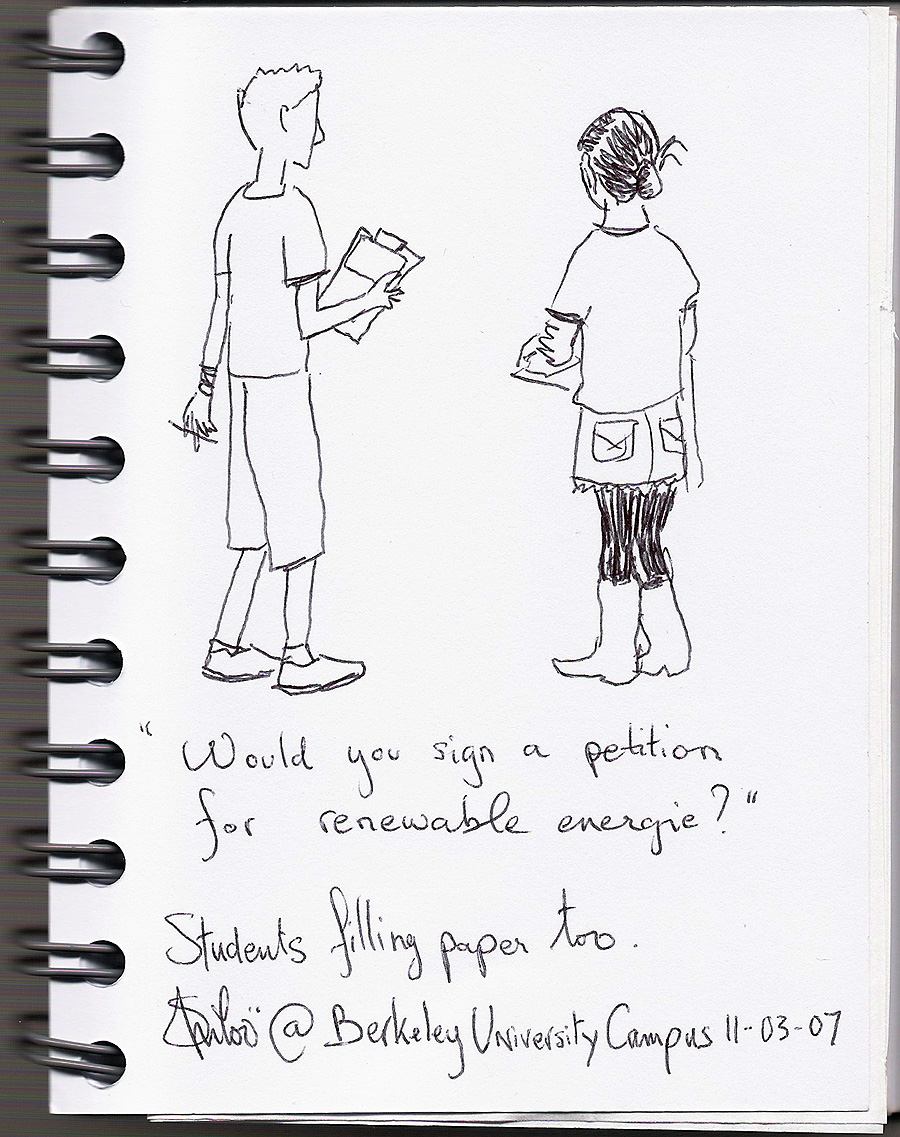 "Would you sign a petition
for renewable energie?"
Students filling paper too.
@ Berkeley University Campus 11-03-07